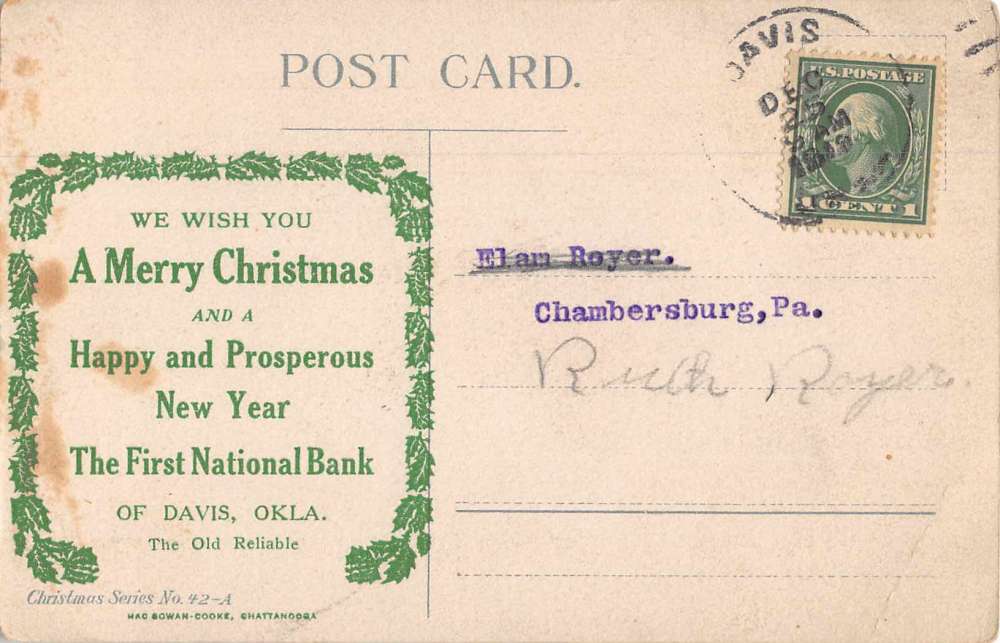 POST CARD.
DAVIS
DEC
AM
U.S. POSTAGE
1 CENT 1
WE WISH YOU
A Merry Christmas
AND A
Happy and Prosperous
New Year
The First National Bank
OF DAVIS, OKLA.
The Old Reliable
Christmas Series No. 42-A
MAC GOWAN-COOKE, CHATTANOOGA
Elam Royer.
Chambersburg,Pa.
Ruth Royer.